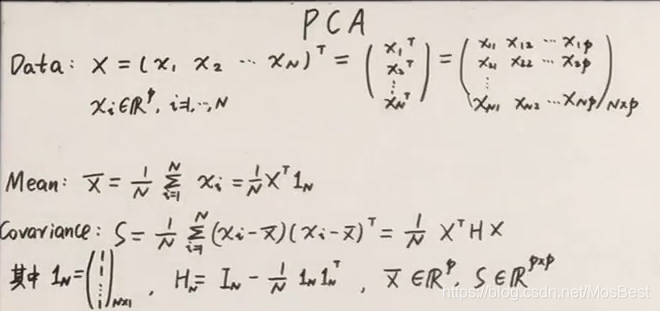 PCA
Data: X = (x₁ x₂ ⋯ x_N)ᵀ = (x₁ᵀ x₂ᵀ ⋮ x_Nᵀ) = (x₁₁ x₁₂ ⋯ x₁p x₂₁ x₂₂ ⋯ x₂p ⋮ x_N1 x_N2 ⋯ x_Np)_N×p
xᵢ∈ℝᵖ, i=1,⋯,N
Mean: X̄ = 1/N Σᵢ₌₁ᴺ xᵢ = 1/N Xᵀ1_N
Covariance: S = 1/N Σᵢ₌₁ᴺ (xᵢ-x̄)(xᵢ-x̄)ᵀ = 1/N XᵀHX
其中 1_N = (1 1 ⋮ 1)_N×1 , H_N = I_N - 1/N 1_N 1_Nᵀ , X̄ ∈ℝᵖ, S∈ℝᵖˣᵖ
https://blog.csdn.net/MosBest